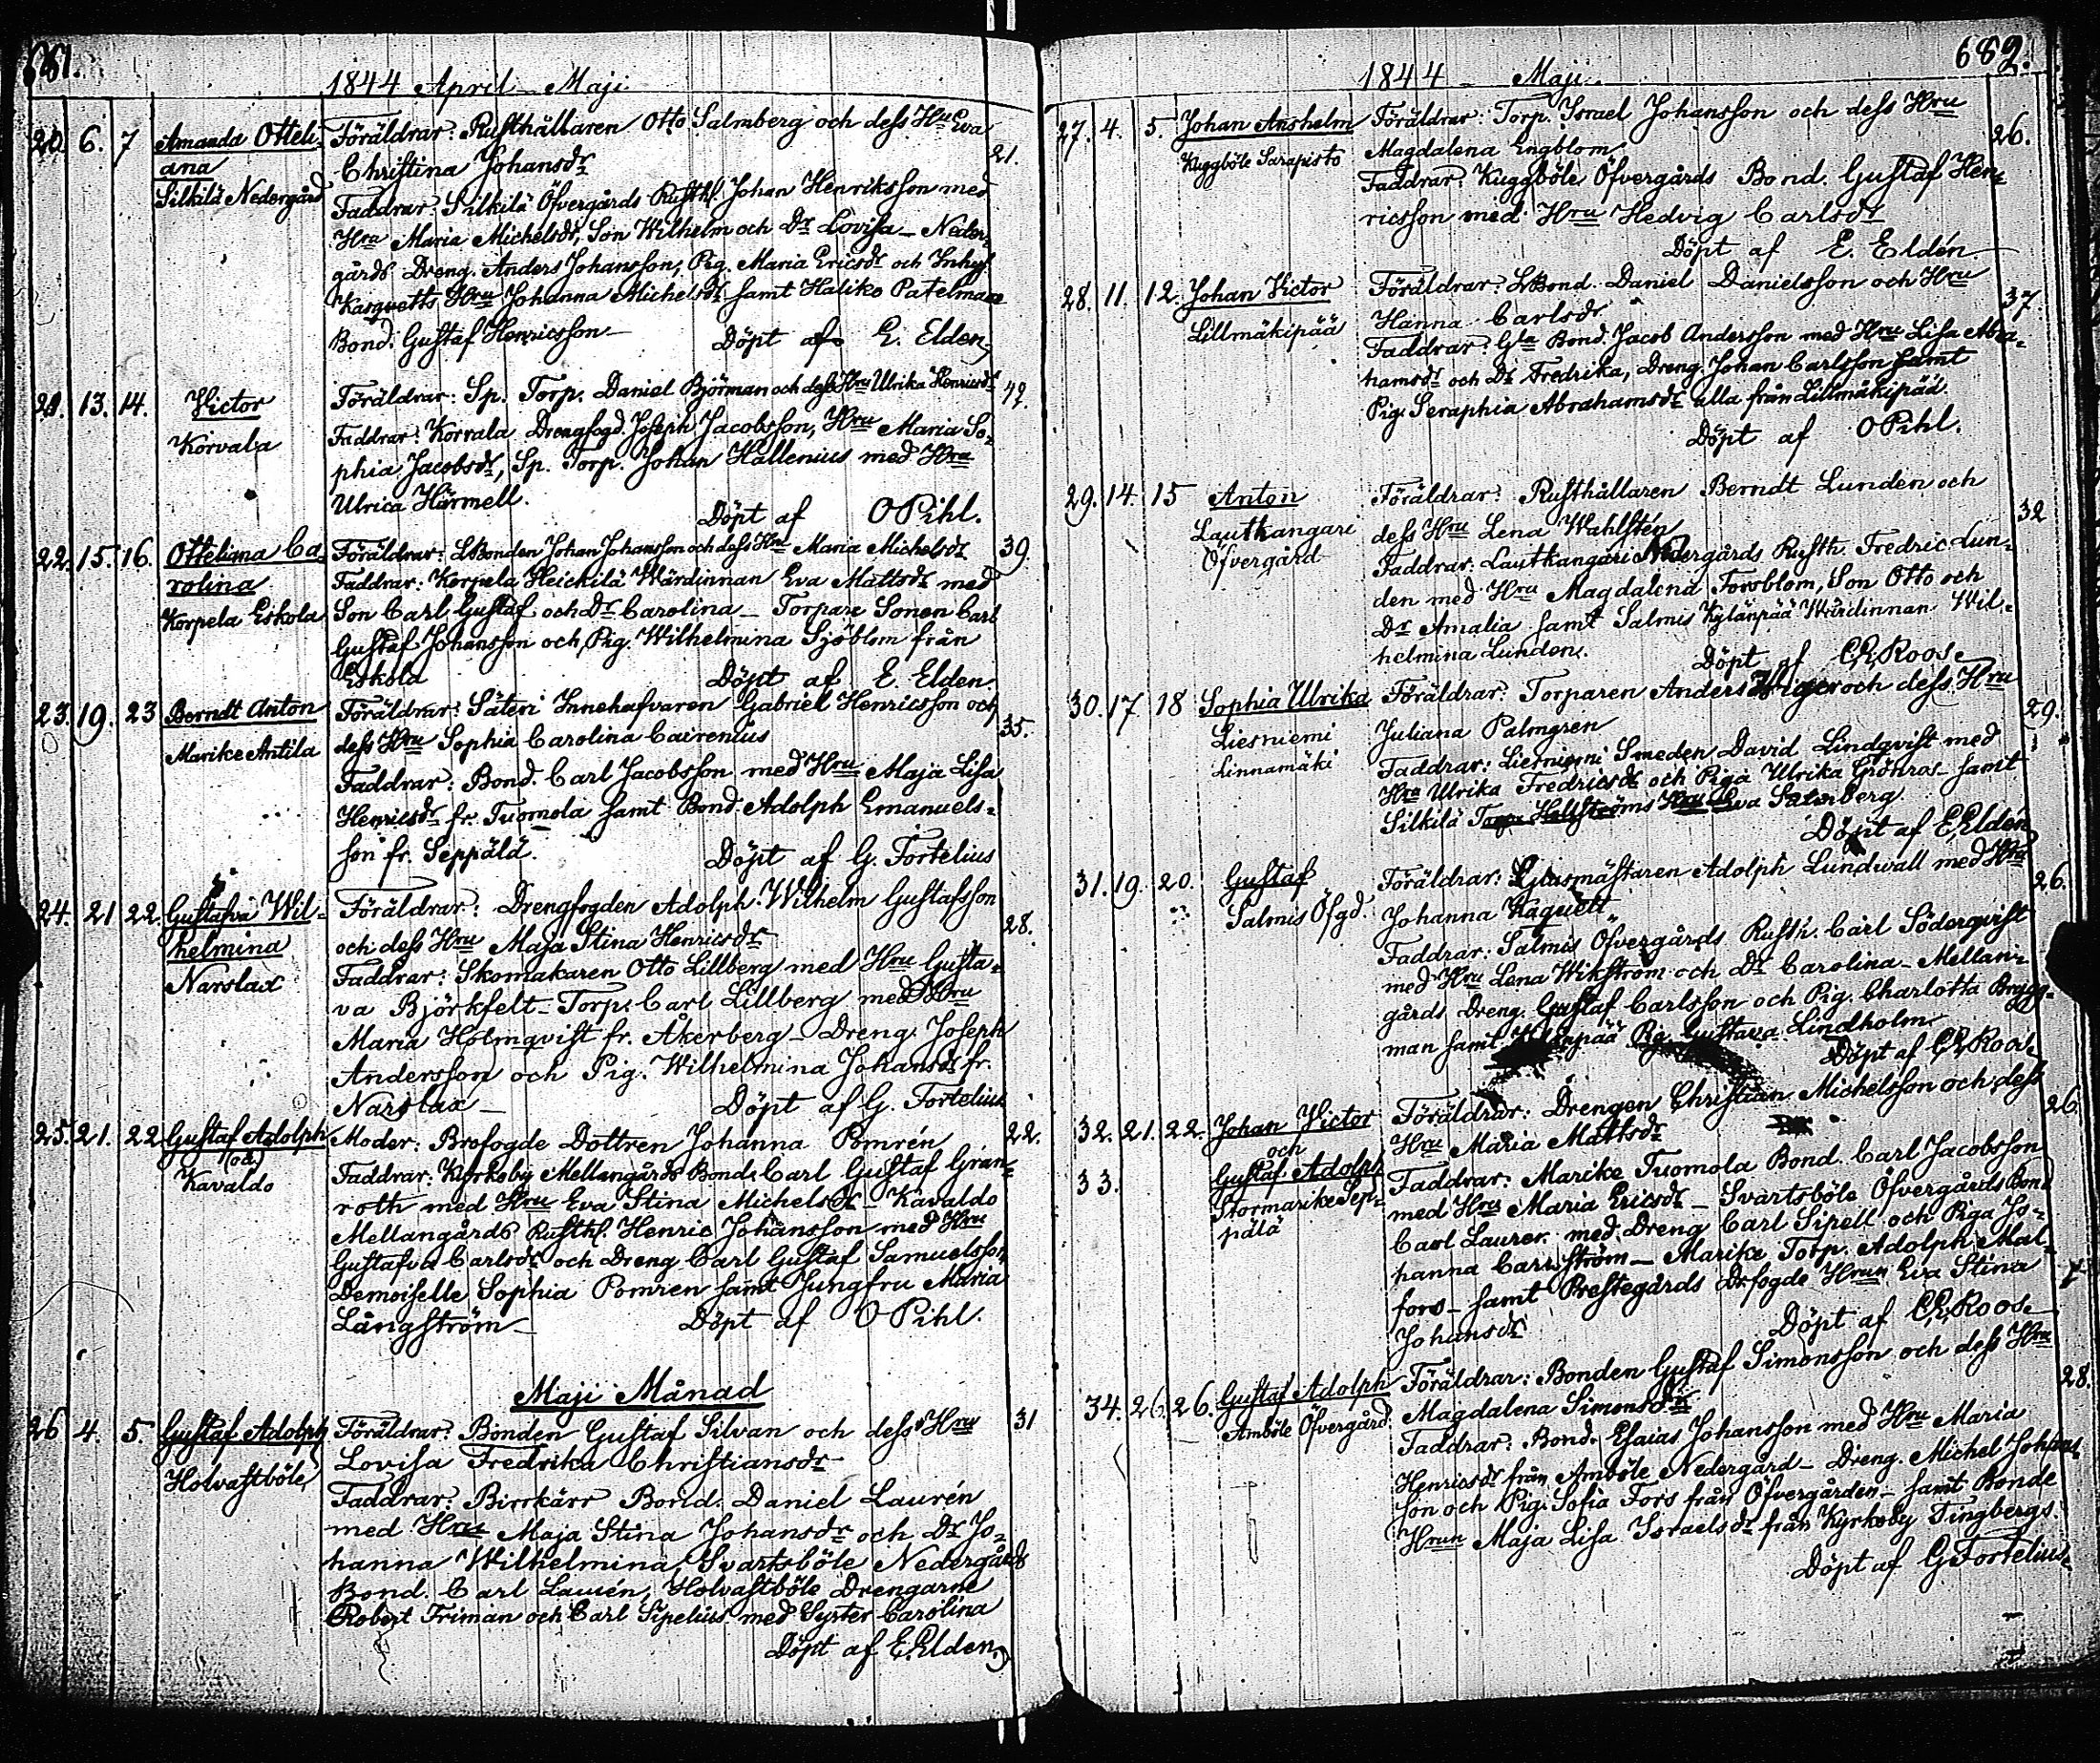 681.
1844 April - Maji
20. 6. 7 Amanda Otteli- Föräldrar: Rusthållaren Otto Salmberg och dess Hu Eva 21.
ana Christina Johansdr
Silkilä Nedergård Faddrar: Silkilä Öfvergårds Rusth. Johan Henriksson med
Hru Maria Michelsdr, Son Wilhelm och Dr Lovisa - Neder-
gårds Dreng. Anders Johansson, Pig. Maria Ericsdr och Inhys
Hru Johanna Michelsdr samt Haliko
Bond. Gustaf Henricsson - Döpt af E. Elden
21. 13. 14. Victor Föräldrar: Sp. Torp. Daniel Björman och dess Hru Ulrika Henricsdr 42.
Korvala Faddrar: Korvala Drengfogd. Joseph Jacobsson, Hru Maria So-
phia Jacobsdr, Sp. Torp. Johan Hallenius med Hru
Ulrica Härmell.
Döpt af O Pihl.
22. 15. 16. Otteliana Ca- Föräldrar: LBonden Johan Johansson och dess Hru Maria Michelsdr 39.
rolina Faddrar: Korpela Heickilä Wärdinnan Eva Mattsdr med
Korpela Eskola Son Carl Gustaf och Dr Carolina - Torpare Sonen Carl
Gustaf Johansson och Pig. Wilhelmina Sjöblom från
Eskola Döpt af E. Elden.
23. 19. 23 Berndt Anton Föräldrar: Säteri Innehafvaren Gabriel Henricsson och 35.
Marike Antila dess Hru Sophia Carolina Cairenius
Faddrar: Bond. Carl Jacobsson med Hru Maja Lisa
Henricsdr fr. Tuomola samt Bond. Adolph Emanuels-
son fr. Seppälä. Döpt af G. Fortelius
24. 21 22. Gustafva Wil- Föräldrar: Drengfogden Adolph Wilhelm Gustafsson 28.
helmina och dess Hru Maja Stina Henricsdr
Narslax Faddrar: Skomakaren Otto Lillberg med Hru Gusta-
va Björkfelt - Torp. Carl Lillberg med Hru
Maria Holmqvist fr. Åkerberg - Dreng. Joseph
Andersson och Pig. Wilhelmina Johansdr fr.
Narslax - Döpt af G. Fortelius
25. 21. 22 Gustaf Adolph Moder: Brofogde Dottren Johanna Pomrén 22.
(oä) Faddrar: Kyrkoby Mellangårds Bond. Carl Gustaf Gran-
Kavaldo roth med Hru Eva Stina Michelsdr - Kavaldo
Mellangårds Rusth. Henric Johansson med Hru
Gustafva Carlsdr och Dreng Carl Gustaf Samuelsson
Demoiselle Sophia Pomren samt Jungfru Maria
Långström - Döpt af O Pihl.
Maji Månad
26 4. 5. Gustaf Adolph Föräldrar: Bonden Gustaf Silvan och dess Hru 31
Lovisa Fredrika Christiansdr
Holvastböle Faddrar: Birrkärr Bond. Daniel Laurén
med Hru Maja Stina Johansdr och Dr Jo-
hanna Wilhelmina, Svartsböle Nedergårds
Bond. Carl Lauren, Holvastböle Drengarne
Robert Friman och Carl Sipelius med Syster Carolina
Döpt af E. Elden
682.
1844 - Maji.
27. 4. 5. Johan Anshelm Föräldrar: Torp. Israel Johansson och dess Hru 26.
Kuggböle Sarapisto Magdalena Engblom
Faddrar: Kuggböle Öfvergårds Bond. Gustaf Hen-
ricsson med Hru Hedvig Carlsdr
Döpt af E. Eldén
28. 11. 12. Johan Victor Föräldrar: LBond. Daniel Danielsson och Hru 37.
Lillmäkipää Hanna Carlsdr
Faddrar: Gla Bond. Jacob Andersson med Hru Lisa Abra-
hamsdr och Dr Fredrika, Dreng. Johan Carlsson samt
Pig. Seraphia Abrahamsdr alla från Lillmäkipää.
Döpt af O Pihl.
29. 14. 15 Anton Föräldrar: Rusthållaren Berndt Lunden och 32
Lautkangari dess Hru Lena Wahlstén
Öfvergård Faddrar: Lautkangari Nedergårds Rusth. Fredric Lun-
den med Hru Magdalena Forsblom, Son Otto och
Dr Amalia samt Salmis Kylänpää Wärdinnan Wil-
helmina Lunden. Döpt af C.E. Roos.
30. 17 18 Sophia Ulrika Föräldrar: Torparen Anders och dess Hru 29.
Liesniemi Juliana Palmgren
Linnamäki Faddrar: Liesniemi Smeden David Lindqvist med
Hru Ulrika Fredricsdr och Piga Ulrika Grönros - samt
Silkilä Torp. Hallströms Hru Eva Salmberg
Döpt af E. Eldén
31. 19. 20. Gustaf Föräldrar: Glasmästaren Adolph Lundwall med Hru 26.
Salmis Öfgd. Johanna Kaquett
Faddrar: Salmis Öfvergårds Rusth. Carl Söderqvist
med Hru Lena Wikström och Dr Carolina - Mellan-
gårds Dreng. Gustaf Carlsson och Pig. Charlotta Brygg-
man samt Kylänpää Pig. Gustava Lindholm.
Döpt af C.E. Roos.
32. 21. 22. Johan Victor Föräldrar: Drengen Christian Michelsson och dess 26.
och Hru Maria Mattsdr
33. Gustaf Adolph Faddrar: Marike Tuomola Bond. Carl Jacobsson
Stormarike Sep- med Hru Maria Ericsdr - Svartsböle Öfvergårds Bond
pälä Carl Lauren med Dreng Carl Sipell och Piga Jo-
hanna Carlström - Marike Torp. Adolph Mal-
fors - samt Prestegårds Drfogde Hrun Eva Stina
Johansdr Döpt af C.E. Roos.
34. 26. 26. Gustaf Adolph Föräldrar: Bonden Gustaf Simonsson och dess Hru 28.
Amböle Öfvergård. Magdalena Simonsdr
Faddrar: Bond. Esaias Johansson med Hru Maria
Henricsdr från Amböle Nedergård - Dreng. Michel Johans-
son och Pig. Sofia Fors från Öfvergården - samt Bonde
Hrun Maja Lisa Israelsdr från Kyrkoby Tingbergs.
Döpt af G Fortelius.